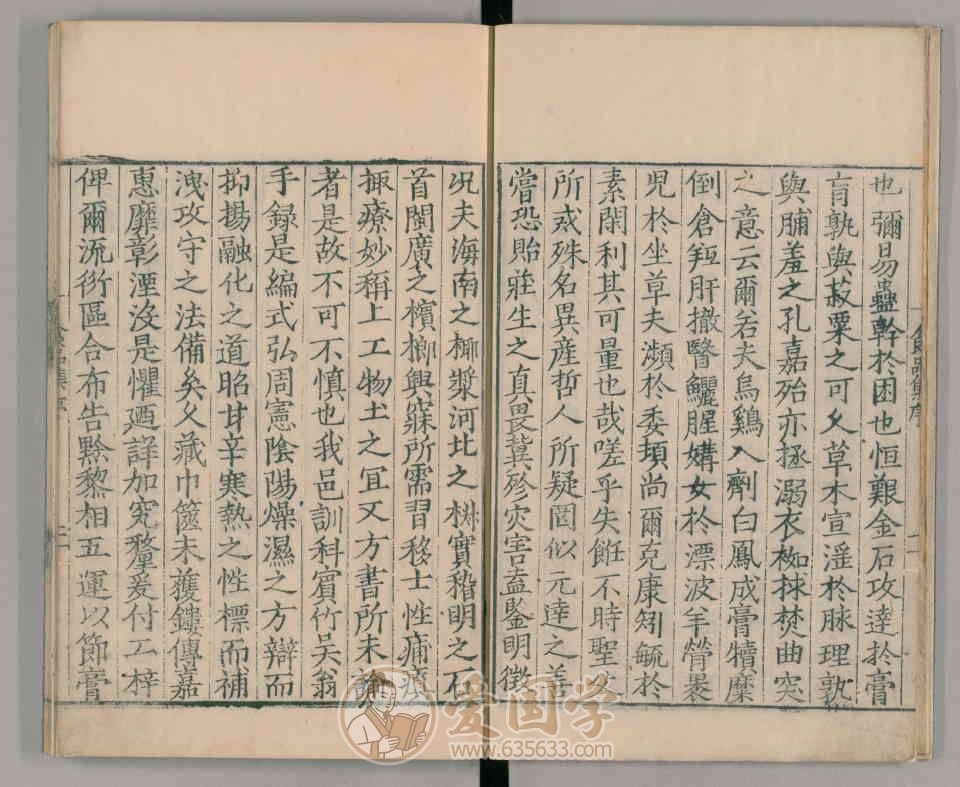 也彌易蠱幹於困也恒艱金石攻達於膏
肓孰與菽粟之可父草木宣滛於脉理孰
與脯羞之孔嘉殆亦拯溺衣袽捄焚曲突
之意云爾若夫烏鷄入劑白鳳成膏犢麋
倒倉羖肝撤瞖鱺腥媾女於漂波羊膋褁
児於坐草夫瀕於委頓尚爾克康矧毓於
素閑利其可量也哉嗟乎失飪不時聖人
所戒殊名異産哲人所疑罔似元達之善
嘗恐貽莊生之真畏冀殄灾害盍鑒明徵
况夫海南之椰漿河北之樹實稽明之石
首閩廣之檳榔興寐所需習移士性痡瘼
掫療妙稱上工物土之宜又方書所未喻
者是故不可不慎也我邑訓科賔竹吳翁
手録是編式弘周憲陰陽燥濕之方辯而
抑揚融化之道昭甘辛寒熱之性標而補
洩攻守之法備矣父藏巾篋未獲鏤傳嘉
惠靡彰湮沒是懼迺詳加究釐爰付工梓
俾爾流衍區合布告黔黎相五運以節膏
食品集序
二
爱国学
www.635633.com